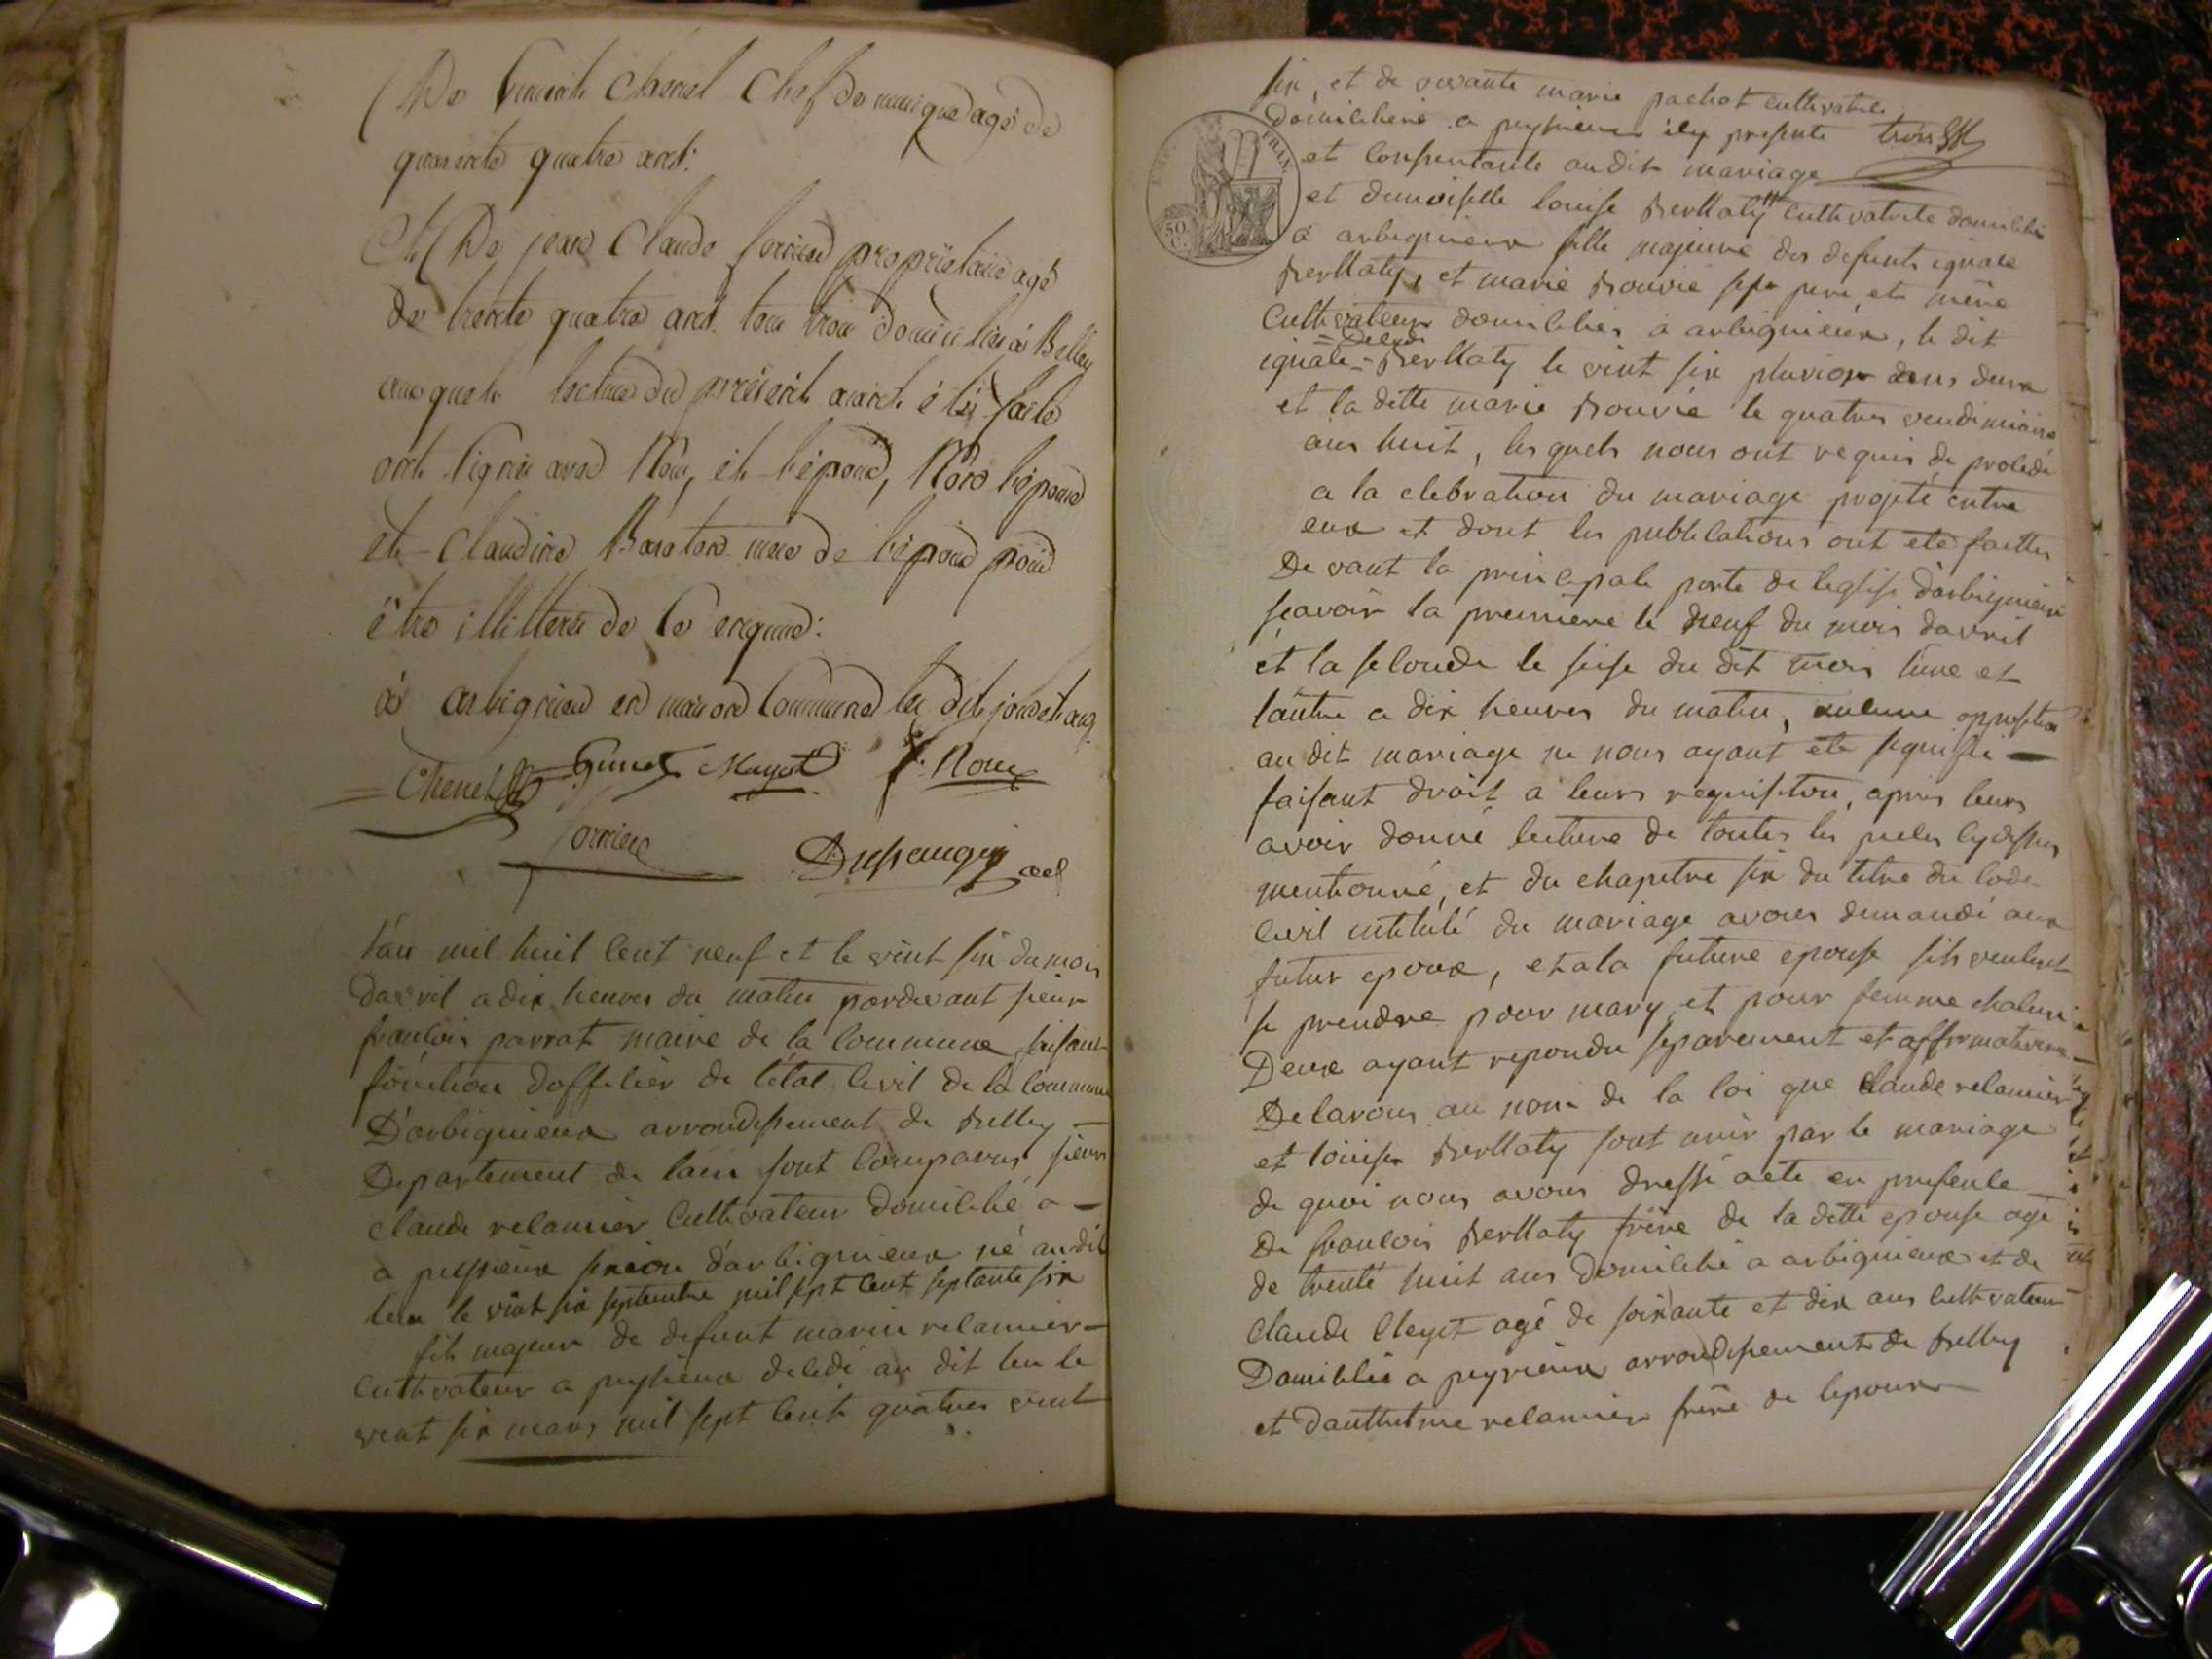 De Vincent Chenel Chef de musique agé de
quarente quatre ans:
Et De jean Claude forniere proprietaire agé
de trente quatre ans. tous trois domicilies à Belley
auxquels lecture du présent aiant été faite
ont signés avec Nous, et l'époux, Non l'épouse
et Claudine mere de l'époux pour
être illitterés de Ce enquis:
à arbignieu en maison Commune les dits jour et an
Chenel Mayot Roux
forniere Dussaugey ael
l'an mil huit cent neuf et le vint six du mois
davril a dix heures du matin pardevant sieur
francois parrat maire de la commune faisant
fonction dofficier de l'état civil de la commune
D'arbignieux arrondissement de Belley —
Departement de lain sont comparus sieurs
claude velannier Cultivateur domicilié a —
a peyssieux section d'arbignieux né audit
lieu le vint six septembre mil sept cent septante six
fils majeur de defunt marin velannier —
cultivateur a peyssieux decedé au dit lieu le
vint six mars mil sept cent quatres vint
six, et de vivante marie pachot cultivatrice
domicilière a peyssieux icy presente trois
et consentante au dit mariage
et demoiselle louise Berllaty cultivatrice domicilié
a arbignieux fille majeure des defunts ignace
Berllaty, et marie Bouvié ses pere, et mère
Cultivateurs domicilies a arbignieux, le dit
= Decede
ignace = Berllaty le vint six pluviose ans deux
et la ditte marie Bouvié le quatres vendimiaire
ans huit, les quels nous ont requis de procede
a la clebration du mariage projeté entre
eux et dont les publications ont eté faittes
De vant la principale porte de leglise d'arbignieux
seavoir la première le neuf du mois davril
et la seconde le seise du dit mois l'une et
l'autre a dix heures du matin, aucune opposition
au dit mariage ne nous ayant eté signifie —
faisant droit a leurs requisition, apres leurs
avoir donné lecture de toutes les pieces cy dessus
mentionné, et du chapitre six du titre du code
civil intitulé du mariage avons demandé aux
futur epoux, et a la future epouse sils veulent
se prendre pour mary et pour femme chalun
Deux ayant repondu separement et affirmativem
Declarons au nom de la loi que claude velannier
et louise Berllaty sont unis par le mariage
de quoi nous avons dressé acte en presence
De francois Berllaty frère de la ditte epouse agé
de trente huit ans domicilié a arbignieux et de
claude Cleyet agé de soixante et dix ans cultivateur
Domicilié a peyrieux arrondissement de Belley
et d'anthelme velannier frère de lepoux